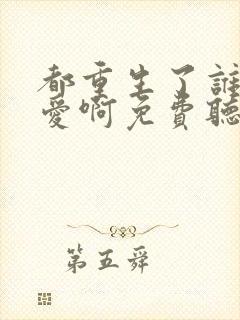 都重生了誰
愛啊免費聽
第五舜